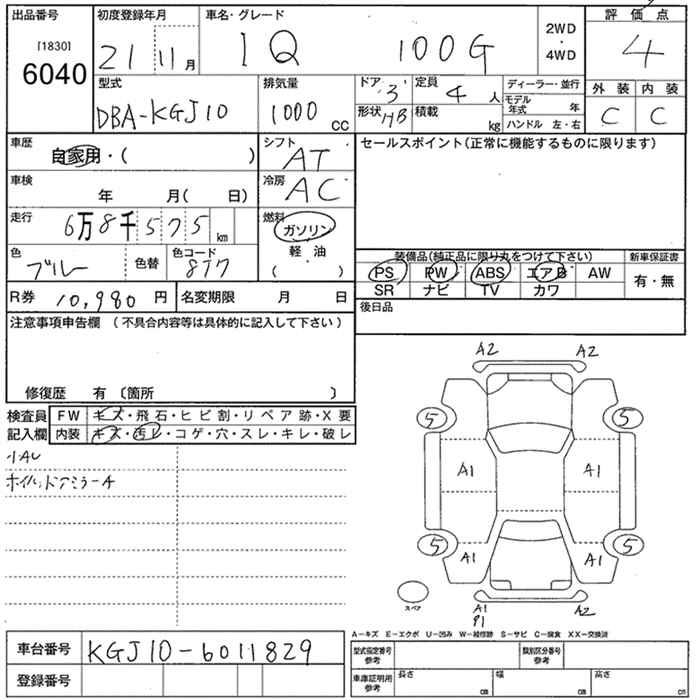 出品番号 初度登録年月 車名・グレード 2WD ・ 4WD 評価点
[1830]
6040 21 11月 IQ 100G 4
型式 排気量 ドア 3 定員 4 人 ディーラー・並行 外装 内装
DBA-KGJ10 1000 cc 形状 HB 積載 kg モデル年式 年 C C
ハンドル 左・右
車歴 自家用・( ) シフト AT セールスポイント(正常に機能するものに限ります)
車検 年 月( 日) 冷房 AC
走行 6万8千575 km 燃料 ガソリン
軽・油
( ・ )
色 ブルー 色替 色コード 装備品(純正品に限り丸をつけて下さい) 新車保証書
PS PW ABS エアB AW 有・無
SR ナビ TV カワ
R券 10,980 円 名変期限 月 日 後日品
注意事項申告欄 (不具合内容等は具体的に記入して下さい)
修復歴 有 〔箇所 〕
検査員 FW キズ・飛石・ヒビ割・リペア跡・X要
記入欄 内装 キズ・汚レ・コゲ・穴・スレ・キレ・破レ
ホイル、ドアミラーA
A2 A2
5 5
A1 A1
5 5
A1 A1
スペア
A1 A2
P1
A-キズ E-エクボ U-凹み W-補修跡 S-サビ C-腐食 XX-交換済
車台番号 KGJ10-6011829
型式指定番号 参考 類別区分番号 参考
登録番号
車庫証明用 参考 長さ cm 幅 cm 高さ cm